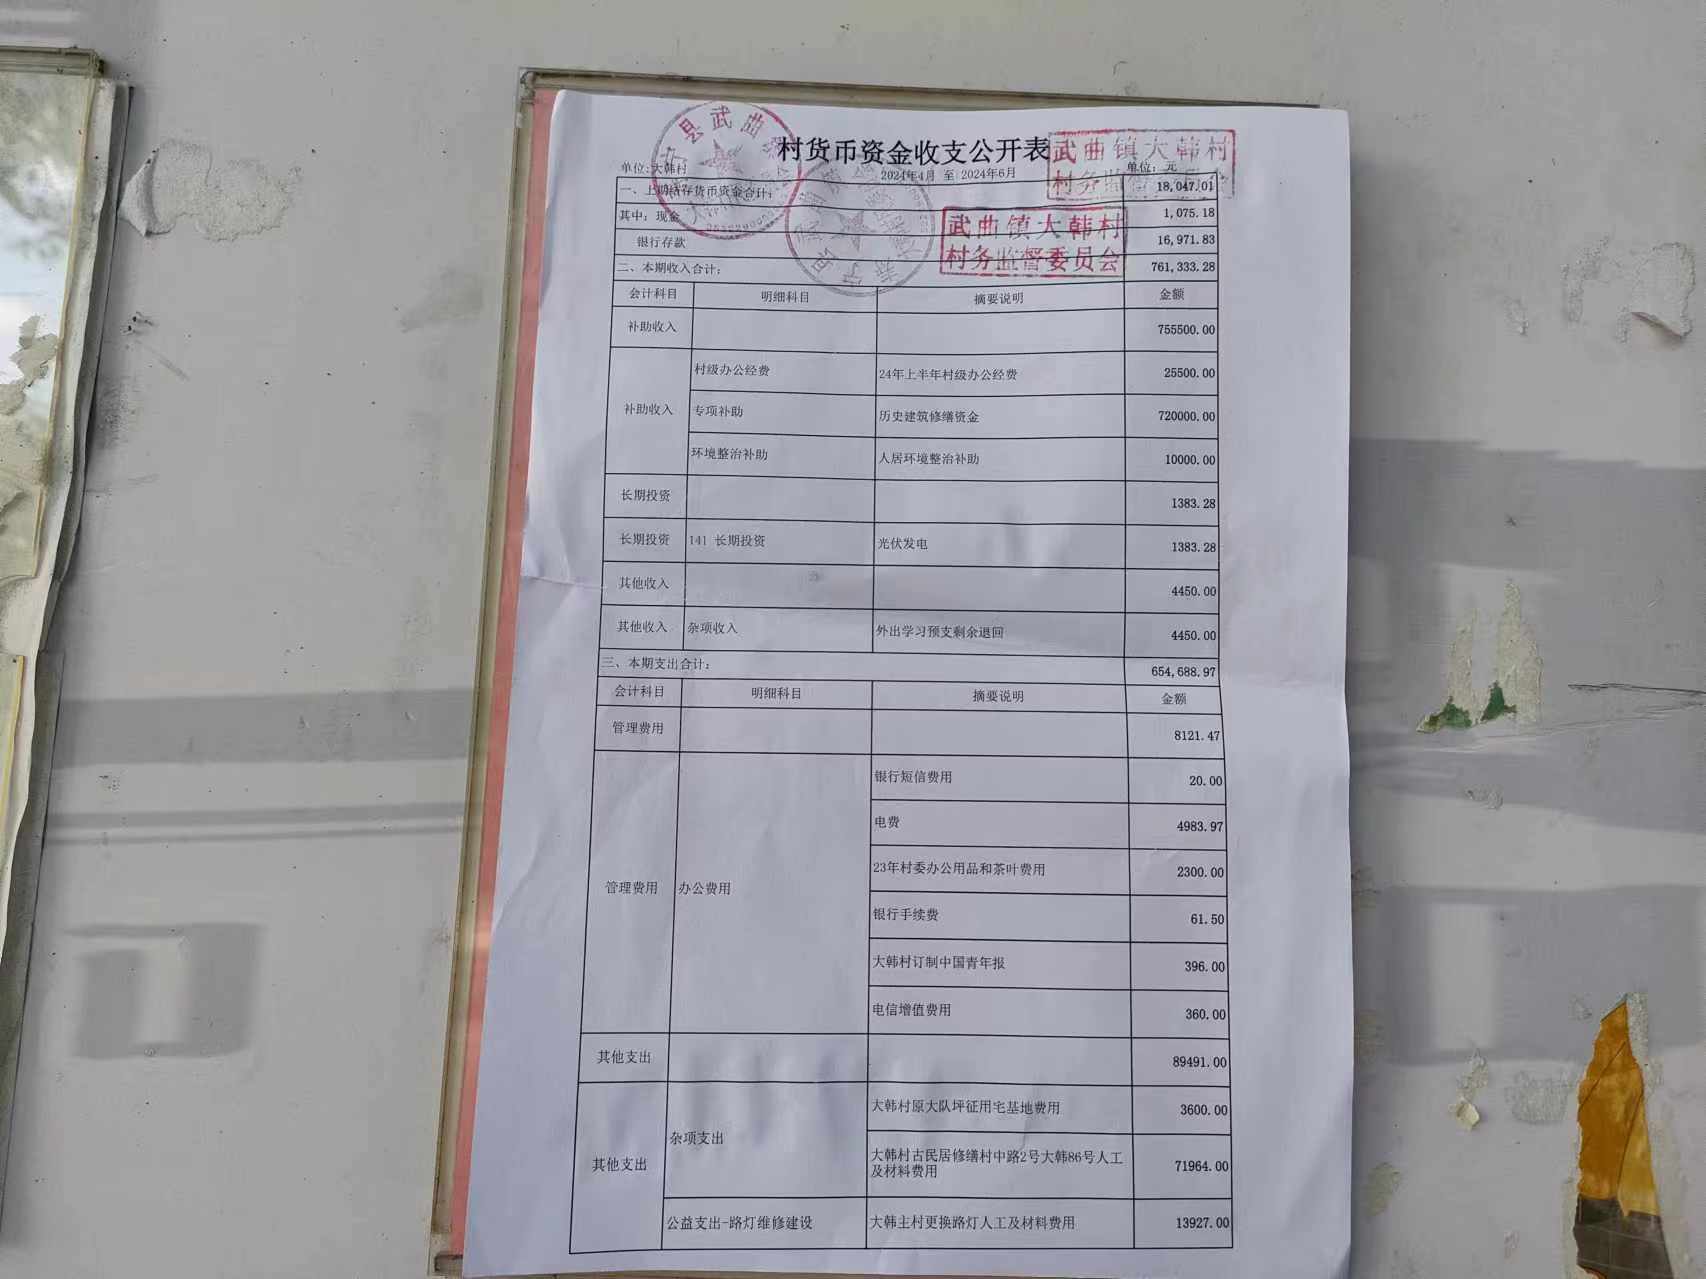 村货币资金收支公开表
单位:大韩村 2024年4月 至 2024年6月 单位：元
武曲镇大韩村
一、上期结存货币资金合计： 18,047.01
其中：现金 1,075.18
银行存款 16,971.83
武曲镇大韩村
村务监督委员会
二、本期收入合计： 761,333.28
会计科目 明细科目 摘要说明 金额
补助收入 755500.00
补助收入 村级办公经费 24年上半年村级办公经费 25500.00
专项补助 历史建筑修缮资金 720000.00
环境整治补助 人居环境整治补助 10000.00
长期投资 1383.28
长期投资 141 长期投资 光伏发电 1383.28
其他收入 4450.00
其他收入 杂项收入 外出学习预支剩余退回 4450.00
三、本期支出合计： 654,688.97
会计科目 明细科目 摘要说明 金额
管理费用 8121.47
管理费用 办公费用 银行短信费用 20.00
电费 4983.97
23年村委办公用品和茶叶费用 2300.00
银行手续费 61.50
大韩村订制中国青年报 396.00
电信增值费用 360.00
其他支出 89491.00
其他支出 杂项支出 大韩村原大队坪征用宅基地费用 3600.00
大韩村古民居修缮村中路2号大韩86号人工
及材料费用 71964.00
公益支出-路灯维修建设 大韩主村更换路灯人工及材料费用 13927.00